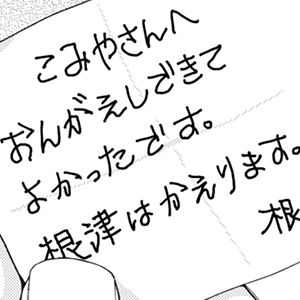 こみやさんへ
おんがえしできて
よかったです。
根津はかえります。
根